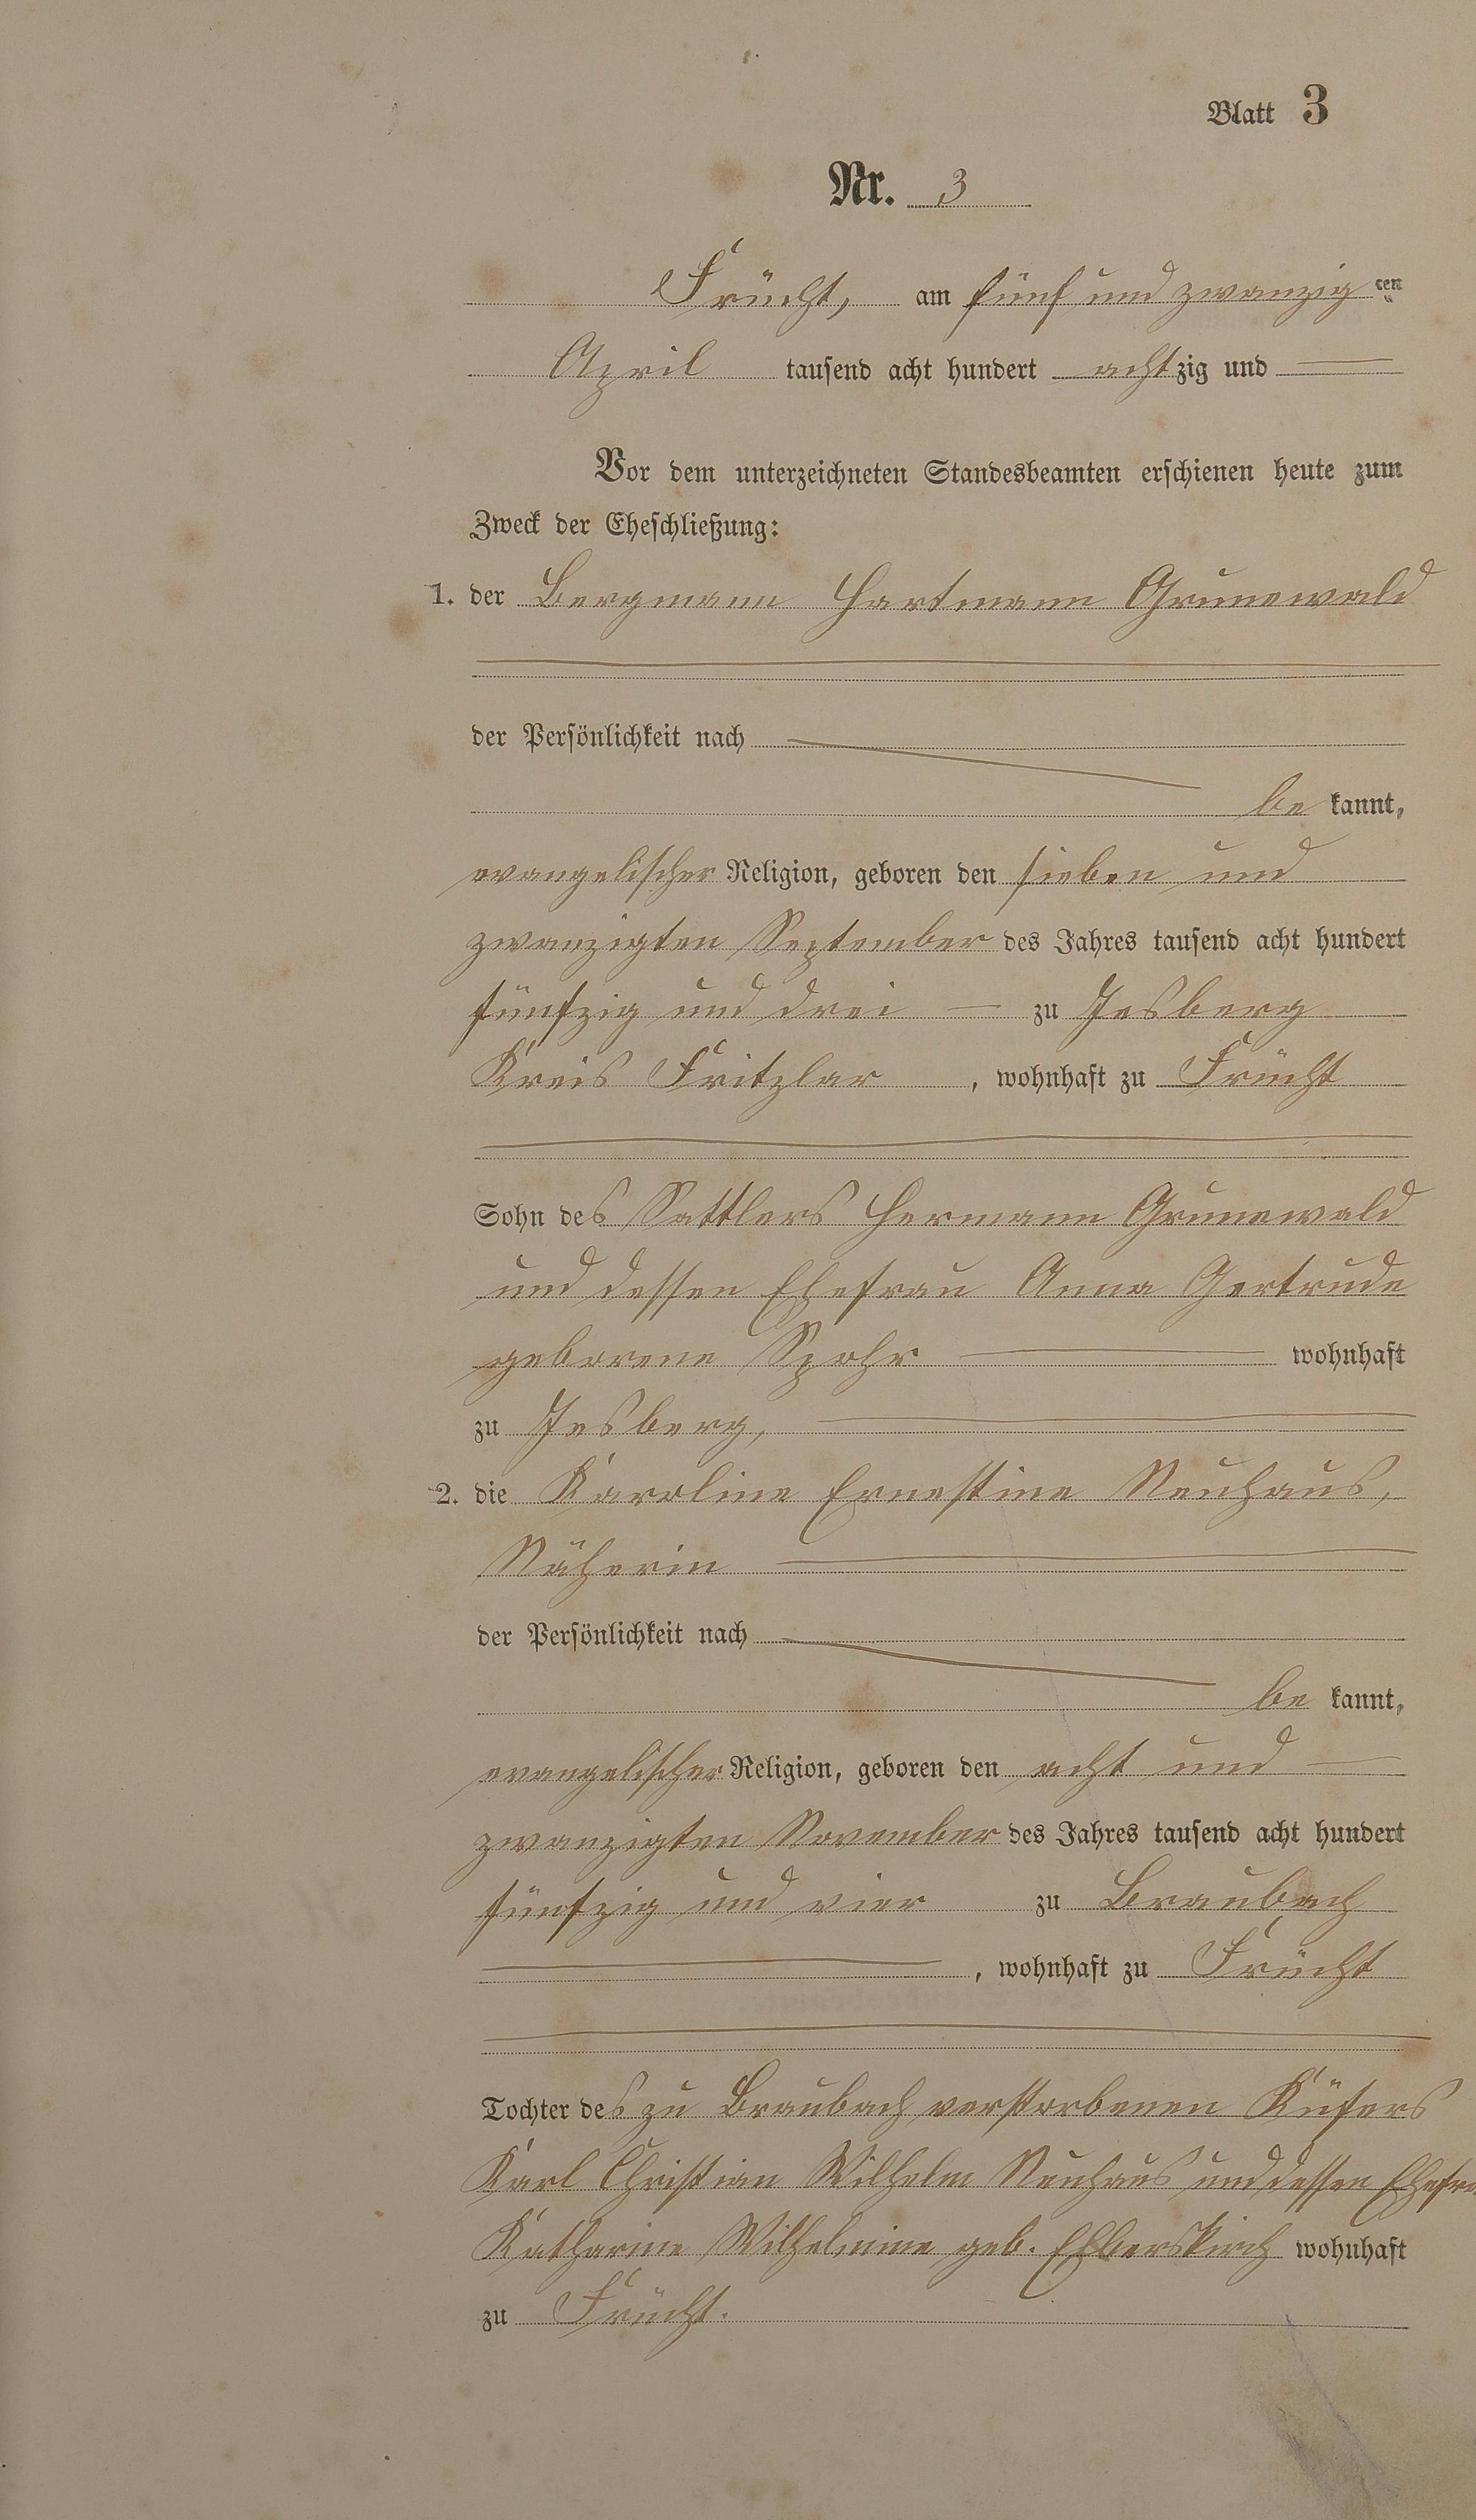 Blatt 3
Nr. 3
Frücht, am fünf und zwanzig ten
April tausend acht hundert achtzig und
Vor dem unterzeichneten Standesbeamten erschienen heute zum
Zweck der Eheschließung:
1. der Bergmann Hartmann Grunewald
der Persönlichkeit nach
be kannt,
evangelischer Religion, geboren den sieben und
zwanzigten September des Jahres tausend acht hundert
fünfzig und drei — zu Jesberg
Kreis Fritzlar, wohnhaft zu Frücht
Sohn des Sattlers Hermann Grunewald
und dessen Ehefrau Anna Gertrude
geborene Spohr wohnhaft
zu Jesberg,
2. die Karoline Ernestine Neuhaus,
Näherin
der Persönlichkeit nach
be kannt,
evangelischer Religion, geboren den acht und —
zwanzigten November des Jahres tausend acht hundert
fünfzig und vier zu Braubach
, wohnhaft zu Frücht
Tochter des zu Braubach verstorbenen Küfers
Karl Christian Wilhelm Neuhaus und dessen Ehefra
Katharine Wilhelmine geb. wohnhaft
zu Frücht.